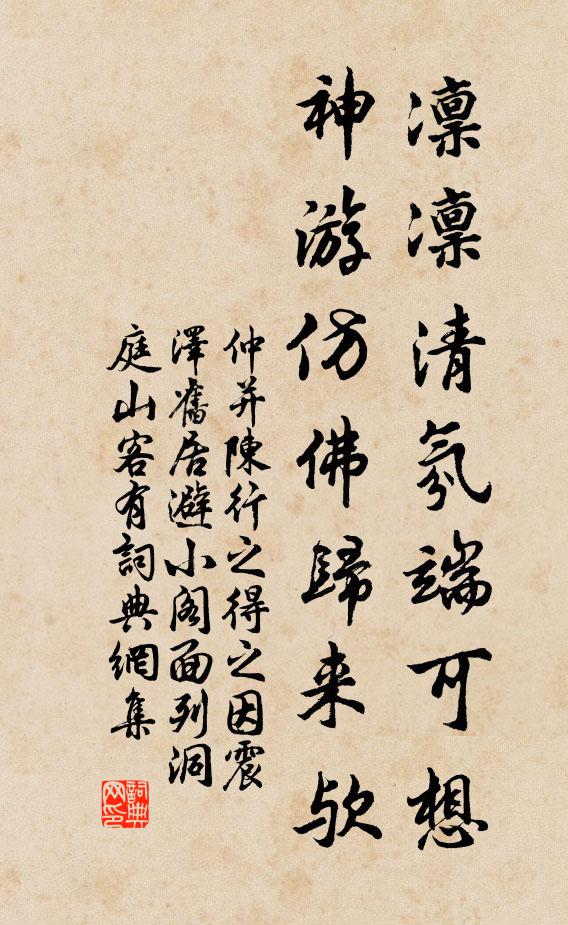 凛凛清氛端可想
神游仿佛歸来欤
仲并陳行之得之因震
澤舊居避小阁面列洞
庭山客有詞典網集
詞典网印